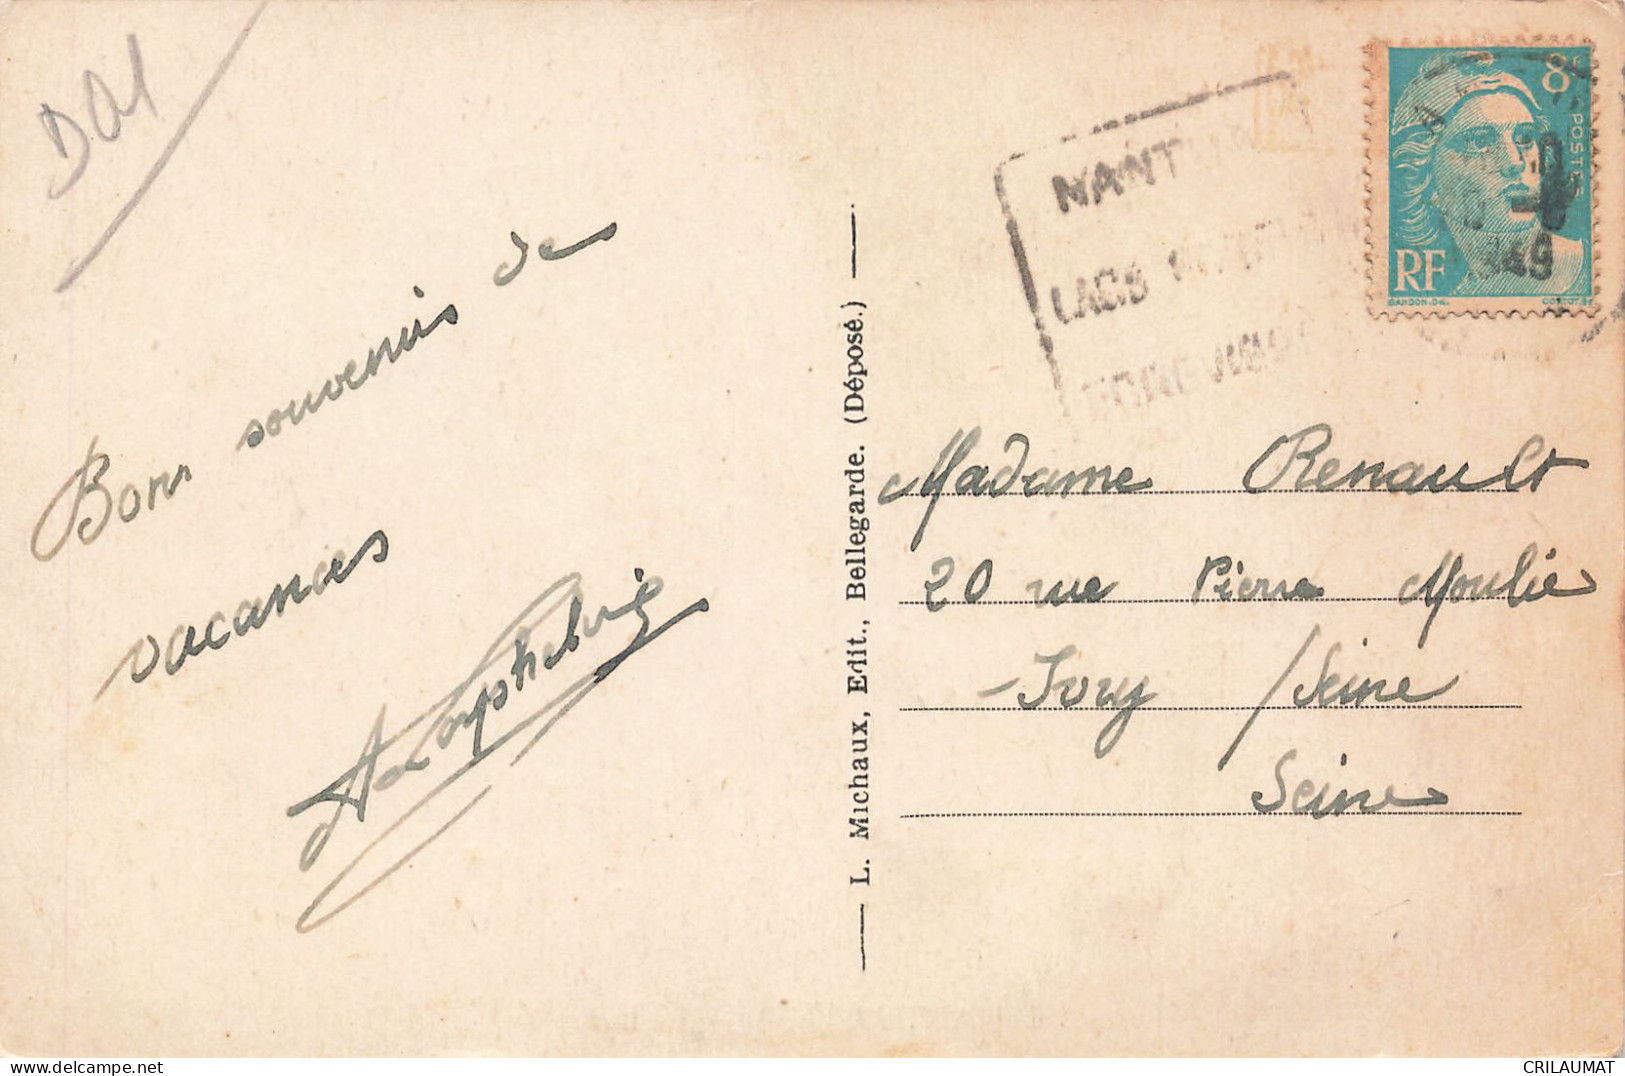 D01
Bons souvenirs de
vacances
L. Michaux, Edit., Bellegarde. (Déposé.)
NANT
LACS
8F
POSTES
RF
GANDON.DEL.
1949
Madame Renault
20 rue Pierre Moulie
Ivry /Seine
Seine
CRILAUMAT